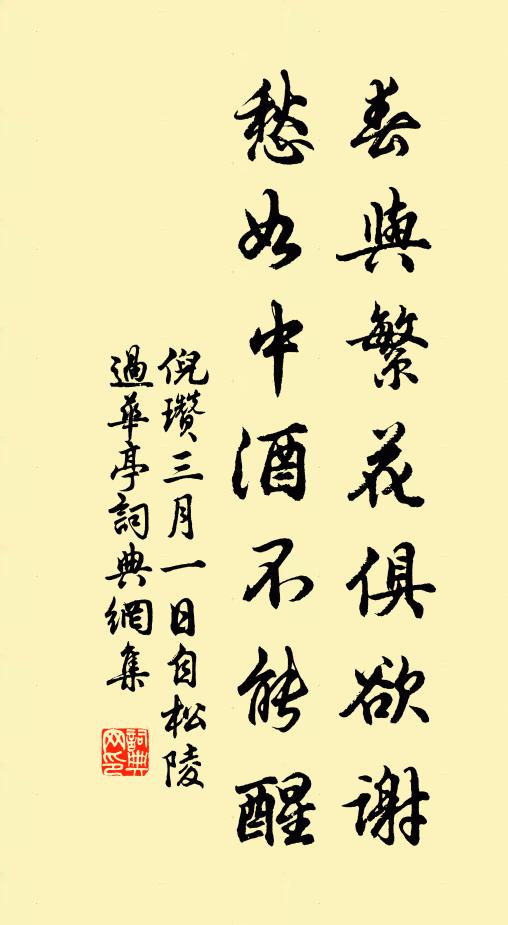 春與繁花俱欲謝
愁如中酒不能醒
倪瓚三月一日自松陵
過華亭詞典網集
詞典
网印